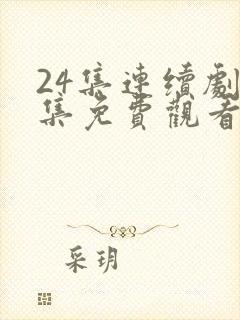 24集連續劇
集免費觀看
采玥